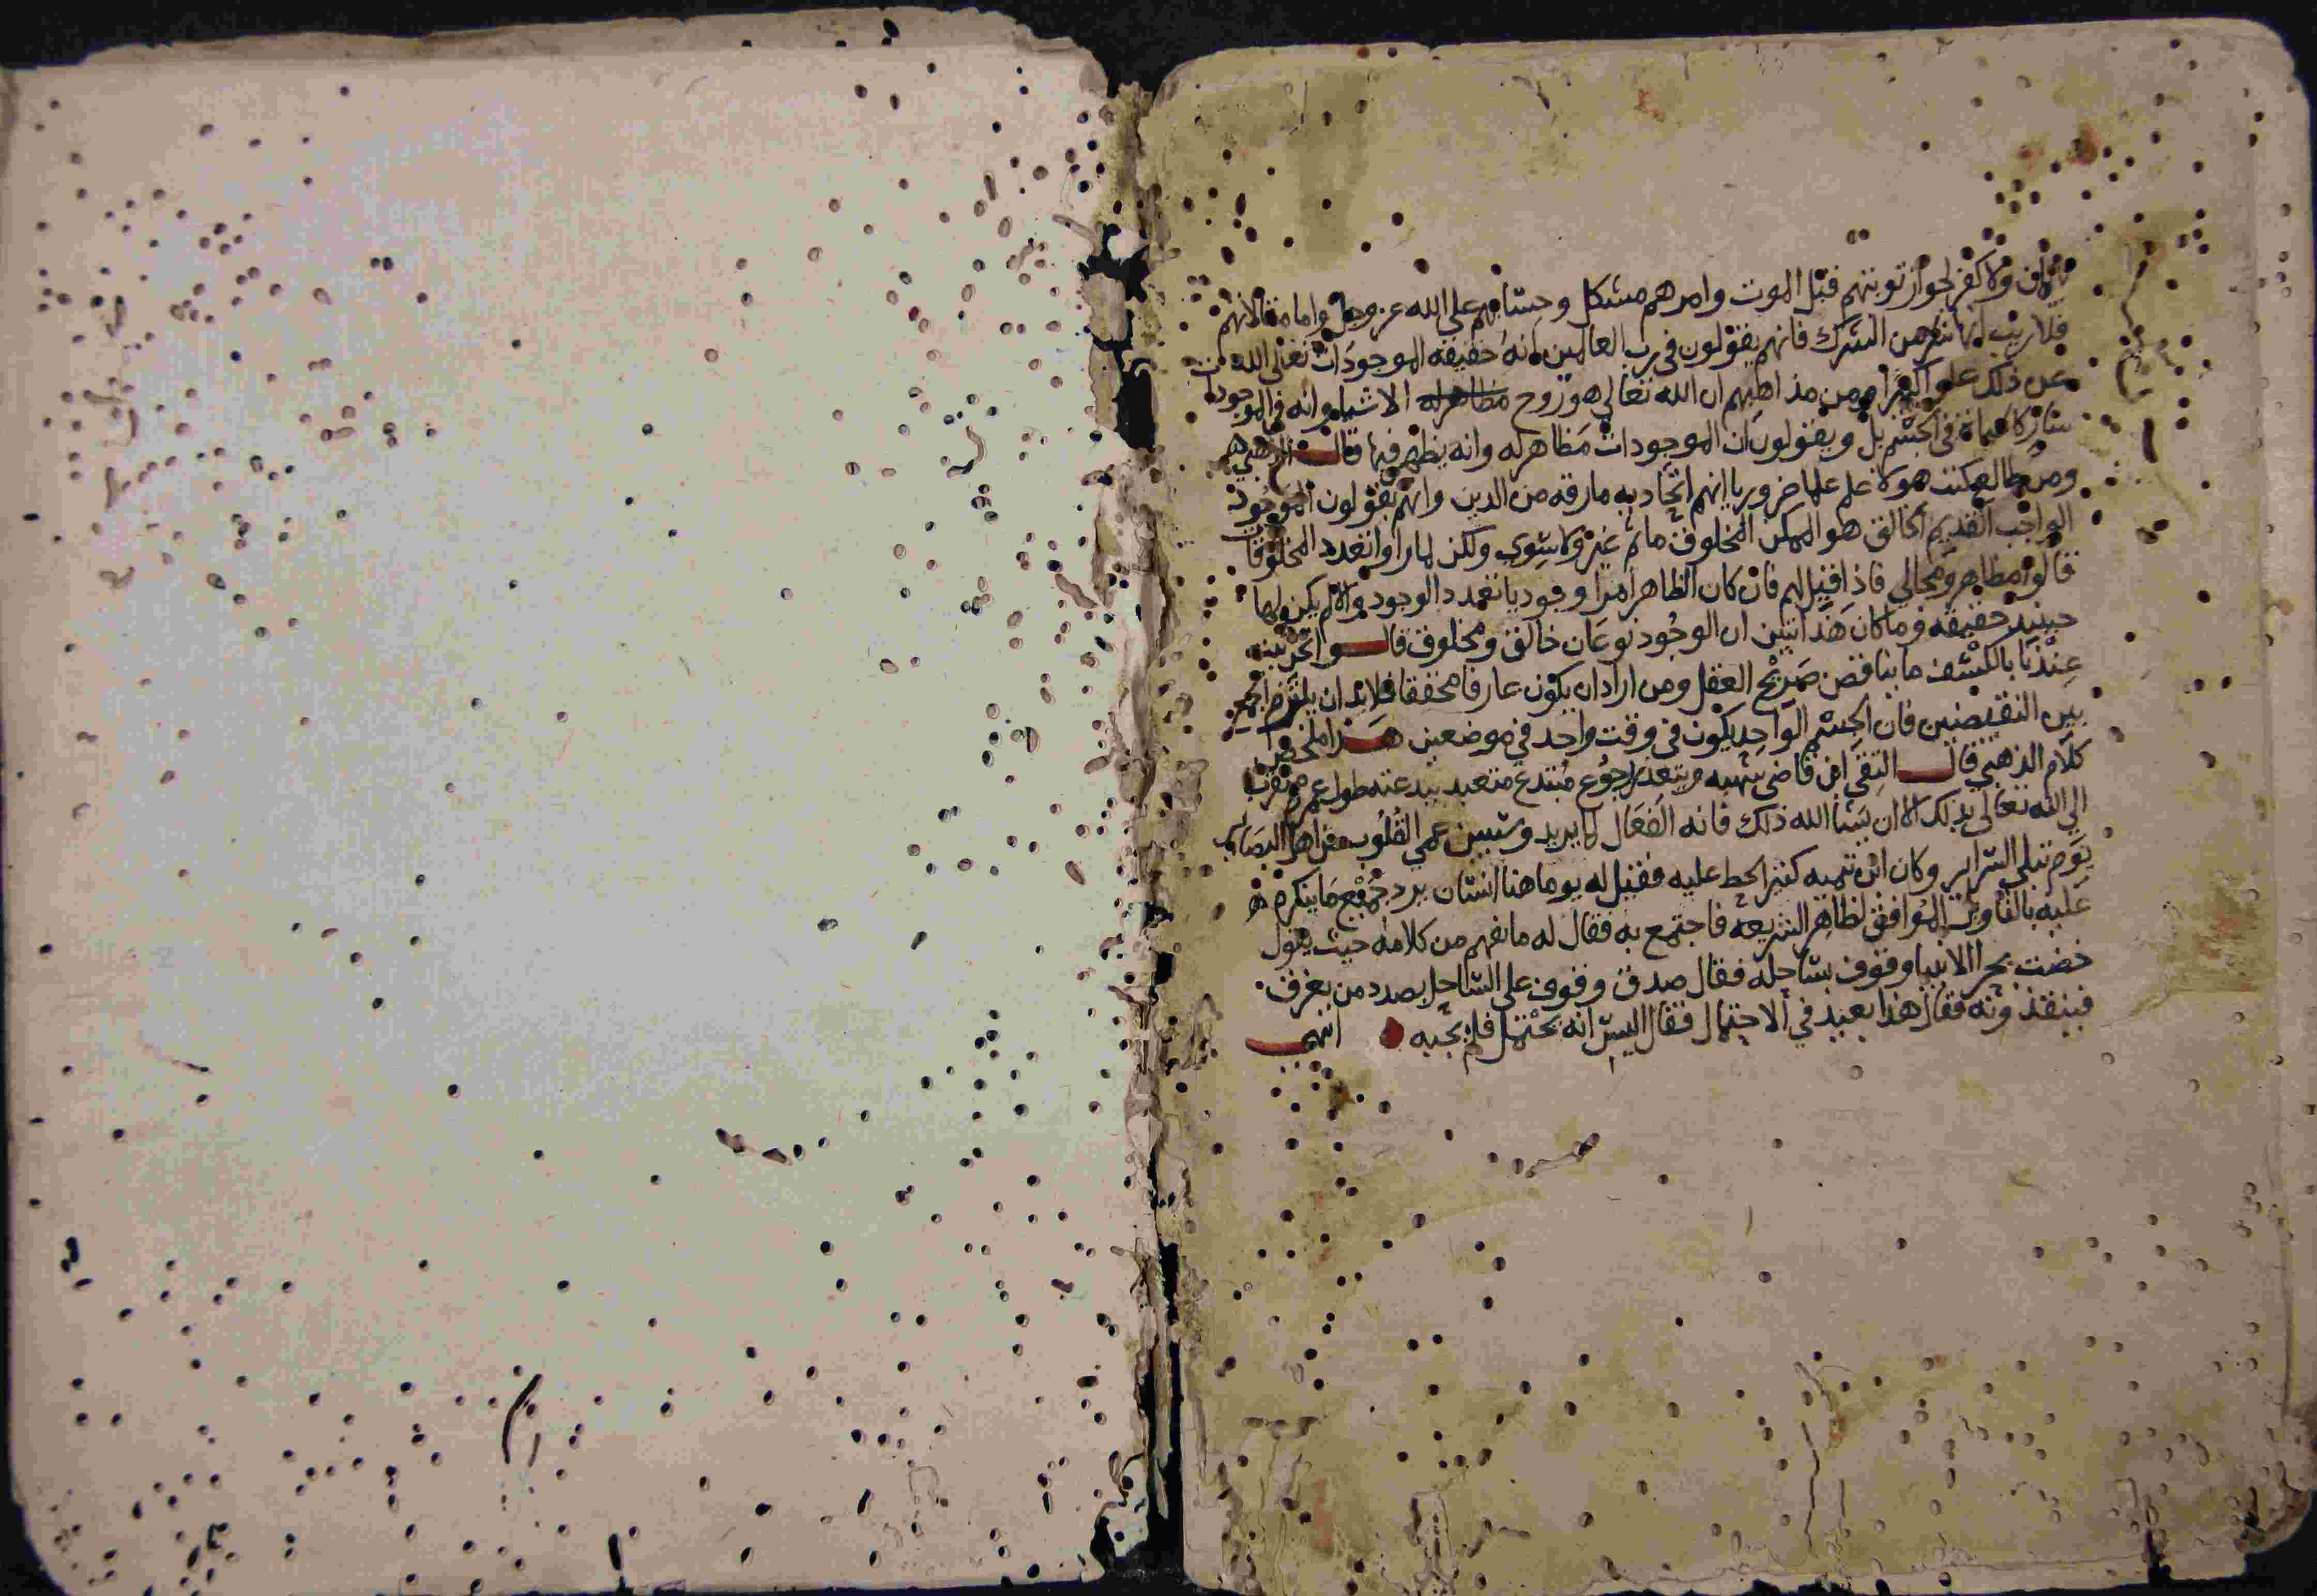 ولا كفر لجواز توبتهم قبل الموت وامرهم مشكل وحسابهم على الله عز وجل واما مقالاتهم
فلا ريب انها شر من الشرك فانهم يقولون في رب العالمين انه حقيقه الموجودات تعالى الله
عن ذلك علوا كبيرا ومن مذاهبهم ان الله تعالى هو روح مظاهر له الاشيا وانه في الموجودات
سار كالحياة في الجسم بل ويقولون ان الموجودات مظاهر له وانه يظهر فيها قال الذهبي
ومن طالع كتب هولا علم علما ضروريا انهم اتحاديه مارقه من الدين وانهم يقولون الموجود
الواجب القديم الخالق هو الممكن المخلوق ما ثم غير ولا سوى ولكن لما راوا تعدد المخلوقات
قالوا مظاهر ومجالي فاذا قيل لهم فان كان الظاهر امرا وجوديا تعدد الوجود والا لم يكن لها
حينيذ حقيقه وما كان هذا تبين ان الوجود نوعان خالق ومخلوق قالوا نحن ثبت
عندنا بالكشف ما يناقض صريح العقل ومن اراد ان يكون عارفا محققا فلا بد ان يلتزم الجمع
بين النقيضين فان الجسم الواحد يكون في وقت واحد في موضعين هذا ملخص
كلام الذهبي قال التقي ابن قاضي شهبه ويتعذر رجوع مبتدع متعبد ببدعته طول عمره متقرب
الى الله تعالى بذلك الا ان يشا الله ذلك فانه الفعال لما يريد وسيبين عمي القلوب من اهل البصاير
يوم تبلى السراير وكان ابن تيميه كثير الحط عليه فقيل له يوما هنا انسان يرد جميع ما ينكره
عليه بالتاويل الموافق لظاهر الشريعه فاجتمع به فقال له ما تفهم من كلامه حيث يقول
خضت بحرا الانبيا وقوف بساحله فقال صدق وقوف على الساحل بصدد من يغرف
فينقذونه فقال هذا بعيد في الاحتمال فقال اليس انه يحتمل فلم يجبه انتهى